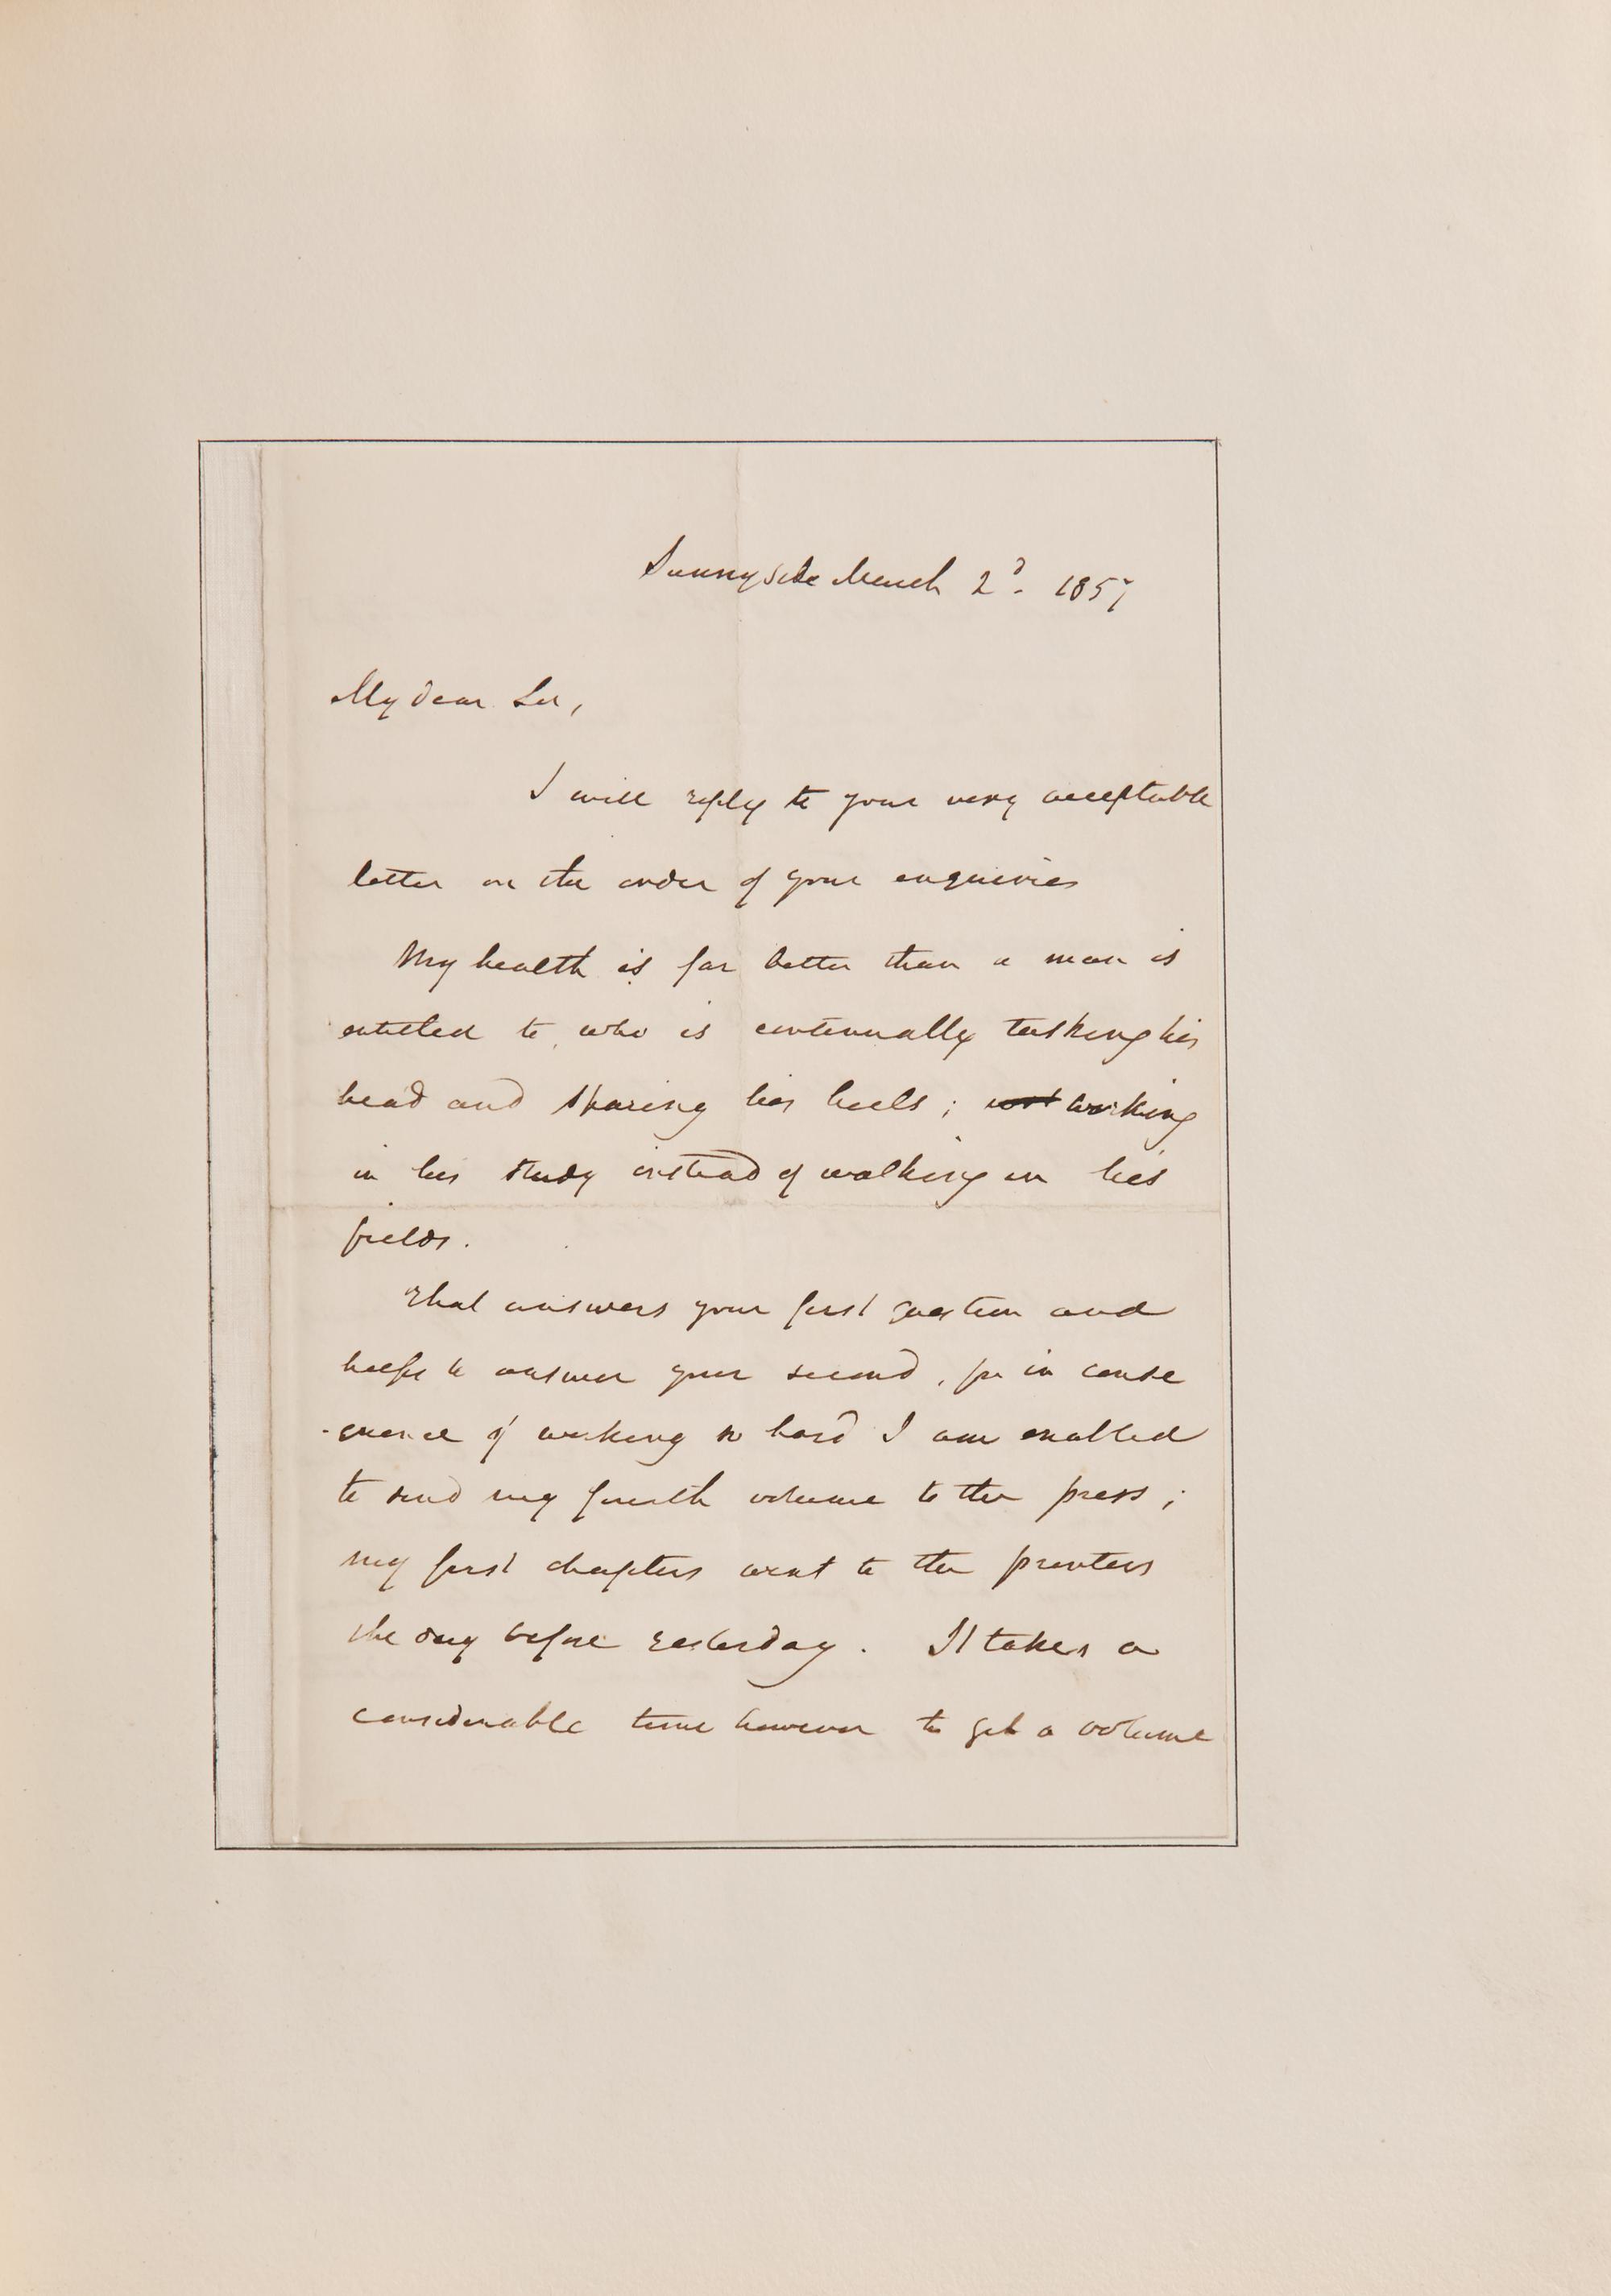 Sunnyside March 2d. 1857
My dear Sir,
I will reply to your very acceptable
letter in the order of your enquiries
My health is far better than a man is
entitled to, who is continually tasking his
head and sparing his heels; working
in his study instead of walking in his
fields.
That answers your first question and
helps to answer your second, for in conse
-quence of working so hard I am enabled
to send my fourth volume to the press;
my first chapters went to the printers
the day before yesterday. It takes a
considerable time however to get a volume